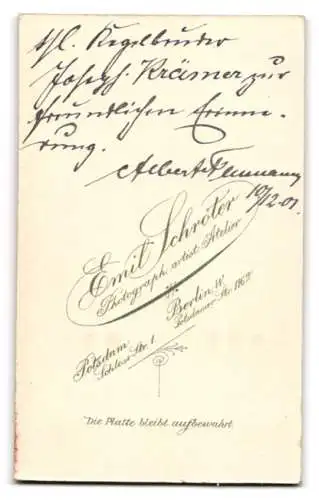 Kegelbruder
Joseph Krämer zur
freundlichen Erinne-
rung.
Albert
10/12.01.
Emil Schröter
Photograph. artist. Atelier
Potsdam
Schloss-Str. 1
Berlin W.
Potsdamer-Str.
Die Platte bleibt aufbewahrt